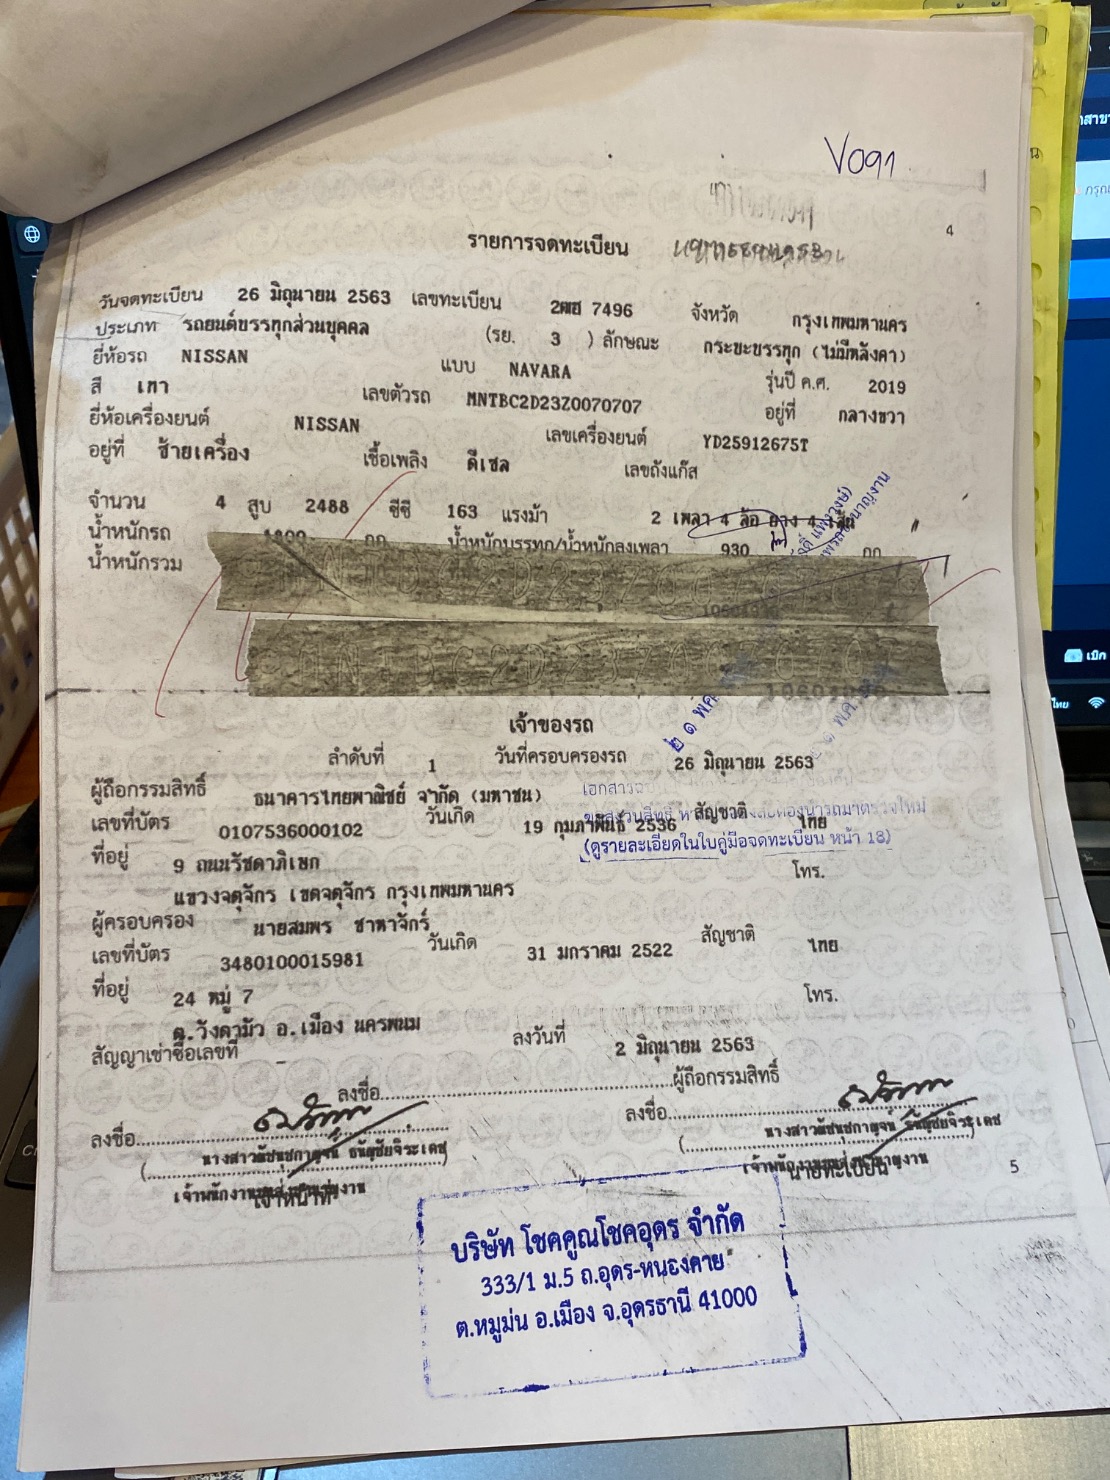 V091
4
รายการจดทะเบียน
วันจดทะเบียน 26 มิถุนายน 2563 เลขทะเบียน 2ฒฮ 7496 จังหวัด กรุงเทพมหานคร
ประเภท รถยนต์บรรทุกส่วนบุคคล (รย. 3 ) ลักษณะ กระบะบรรทุก (ไม่มีหลังคา)
ยี่ห้อรถ NISSAN แบบ NAVARA รุ่นปี ค.ศ. 2019
สี เทา เลขตัวรถ MNTBC2D23Z0070707 อยู่ที่ กลางขวา
ยี่ห้อเครื่องยนต์ NISSAN เลขเครื่องยนต์ YD25912675T
อยู่ที่ ซ้ายเครื่อง เชื้อเพลิง ดีเซล เลขถังแก๊ส
จำนวน 4 สูบ 2488 ซีซี 163 แรงม้า 2 เพลา 4 ล้อ ยาง 4 เส้น
น้ำหนักรถ กก. น้ำหนักบรรทุก/น้ำหนักลงเพลา 930 กก.
น้ำหนักรวม
เจ้าของรถ
ลำดับที่ 1 วันที่ครอบครองรถ 26 มิถุนายน 2563
ผู้ถือกรรมสิทธิ์ ธนาคารไทยพาณิชย์ จำกัด (มหาชน)
เลขที่บัตร 0107536000102 วันเกิด 19 กุมภาพันธ์ 2536 สัญชาติ ไทย
(ดูรายละเอียดในใบคู่มือจดทะเบียน หน้า 18)
ที่อยู่ 9 ถนนรัชดาภิเษก โทร.
แขวงจตุจักร เขตจตุจักร กรุงเทพมหานคร
ผู้ครอบครอง นายสมพร ชาหาจักร์
เลขที่บัตร 3480100015981 วันเกิด 31 มกราคม 2522 สัญชาติ ไทย
ที่อยู่ 24 หมู่ 7 โทร.
ต.วังตามัว อ.เมือง นครพนม
สัญญาเช่าซื้อเลขที่ - ลงวันที่ 2 มิถุนายน 2563
ลงชื่อ ผู้ถือกรรมสิทธิ์
ลงชื่อ ลงชื่อ
เจ้าหน้าที่ นายทะเบียน
5
บริษัท โชคคูณโชคอุดร จำกัด
333/1 ม.5 ถ.อุดร-หนองคาย
ต.หมูม่น อ.เมือง จ.อุดรธานี 41000